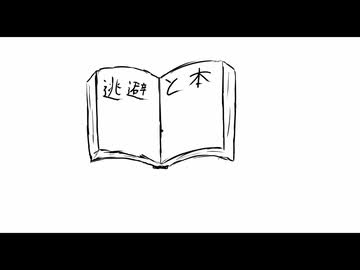 逃避と本